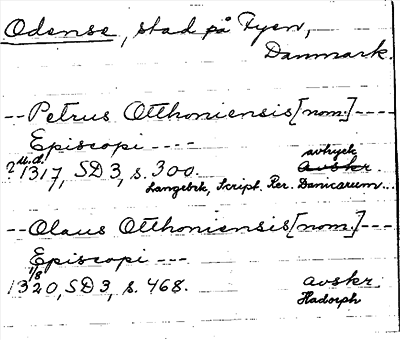 Odense, stad på Fyen,
Danmark.
-- Petrus Otthoniensis [nom.] ----
Episcopi ----
? u.d. 1317, SD 3, s. 300. avtryck avskr.
Langebek, Script. Rer. Danicarum...
-- Olaus Otthoniensis [nom.] ----
Episcopi ---
1/8
1320, SD 3, s. 468. avskr.
Hadorph